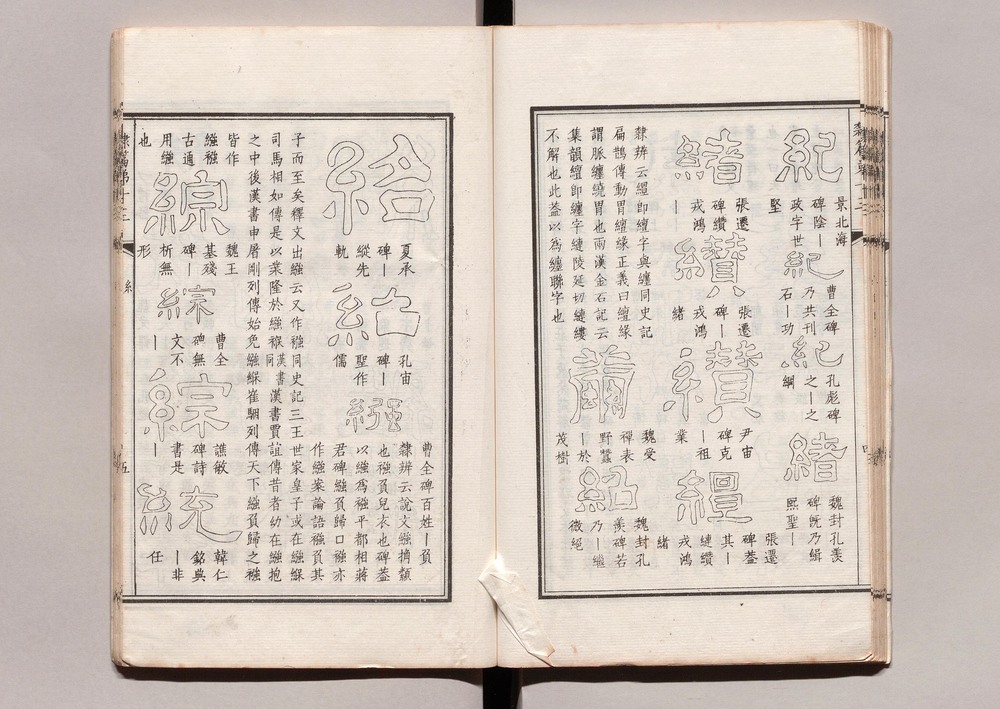 紀
景北海
碑陰丨
政字世
堅
紀
曹全碑
乃共刊
石丨功
紀
孔彪碑
之丨之
綱
緒
魏封孔羨
碑既乃緝
熙聖丨
緒
張遷
碑纘
戎鴻
丨
纘
張遷
碑丨
戎鴻
緒
纘
尹宙
碑克
丨祖
業
繵
張遷
碑蓋
其丨
縺纘
戎鴻
緒
隸辨云繵即繵字與纏同史記
扁鵲傳動胃繵緣正義曰繵緣
謂脈纏繞胃也兩漢金石記云
集韻繵即纏字縺陵延切縺縷
不解也此蓋以為纏聯字也
繭
魏受
禪表
野蠶
丨於
茂樹
紹
魏封孔
羨碑若
乃丨繼
微絕
紿
夏承
碑丨
縱先
軌
紹
孔宙
碑丨
聖作
儒
繈
曹全碑百姓丨負
隸辨云說文繈觕纇
也襁負兒衣也碑蓋
以繈為襁平都相蔣
君碑繈負歸口襁亦
作繈案論語襁負其
子而至矣釋文出繈云又作襁同史記三王世家皇子或在繈緥
司馬相如傳是以業隆於繈褓漢書同漢書賈誼傳昔者幼在繈抱
之中後漢書申屠剛列傳始免繈緥崔駰列傳天下繈負歸之襁
皆作
繈襁
古通
用繈
也
綜
魏王
基殘
碑丨
析無
形
綜
曹全
碑無
文不
丨
綜
譙敏
碑詩
書是
丨
統
韓仁
銘典
丨非
任
糸
五